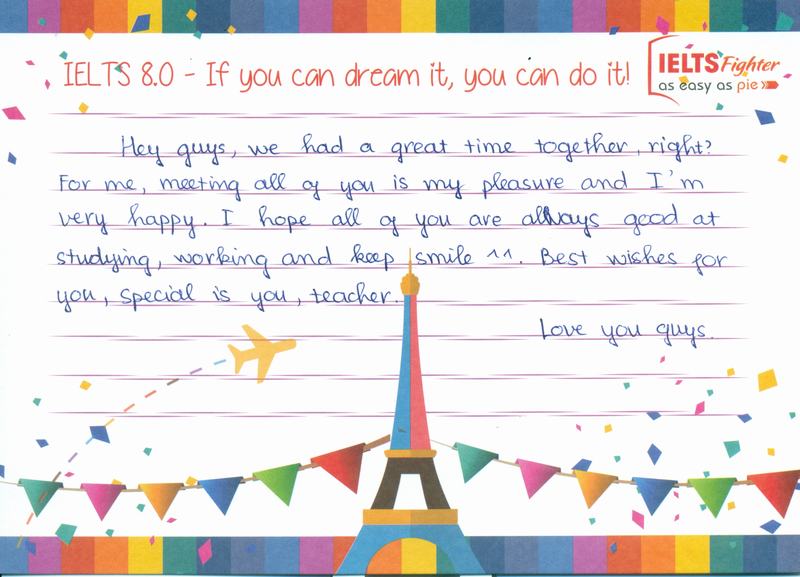 IELTS 8.0 - If you can dream it, you can do it!
IELTS Fighter
as easy as pie
Hey guys, we had a great time together, right?
For me, meeting all of you is my pleasure and I'm
very happy. I hope all of you are always good at
studying, working and keep smile ^^. Best wishes for
you, special is you, teacher.
Love you guys.